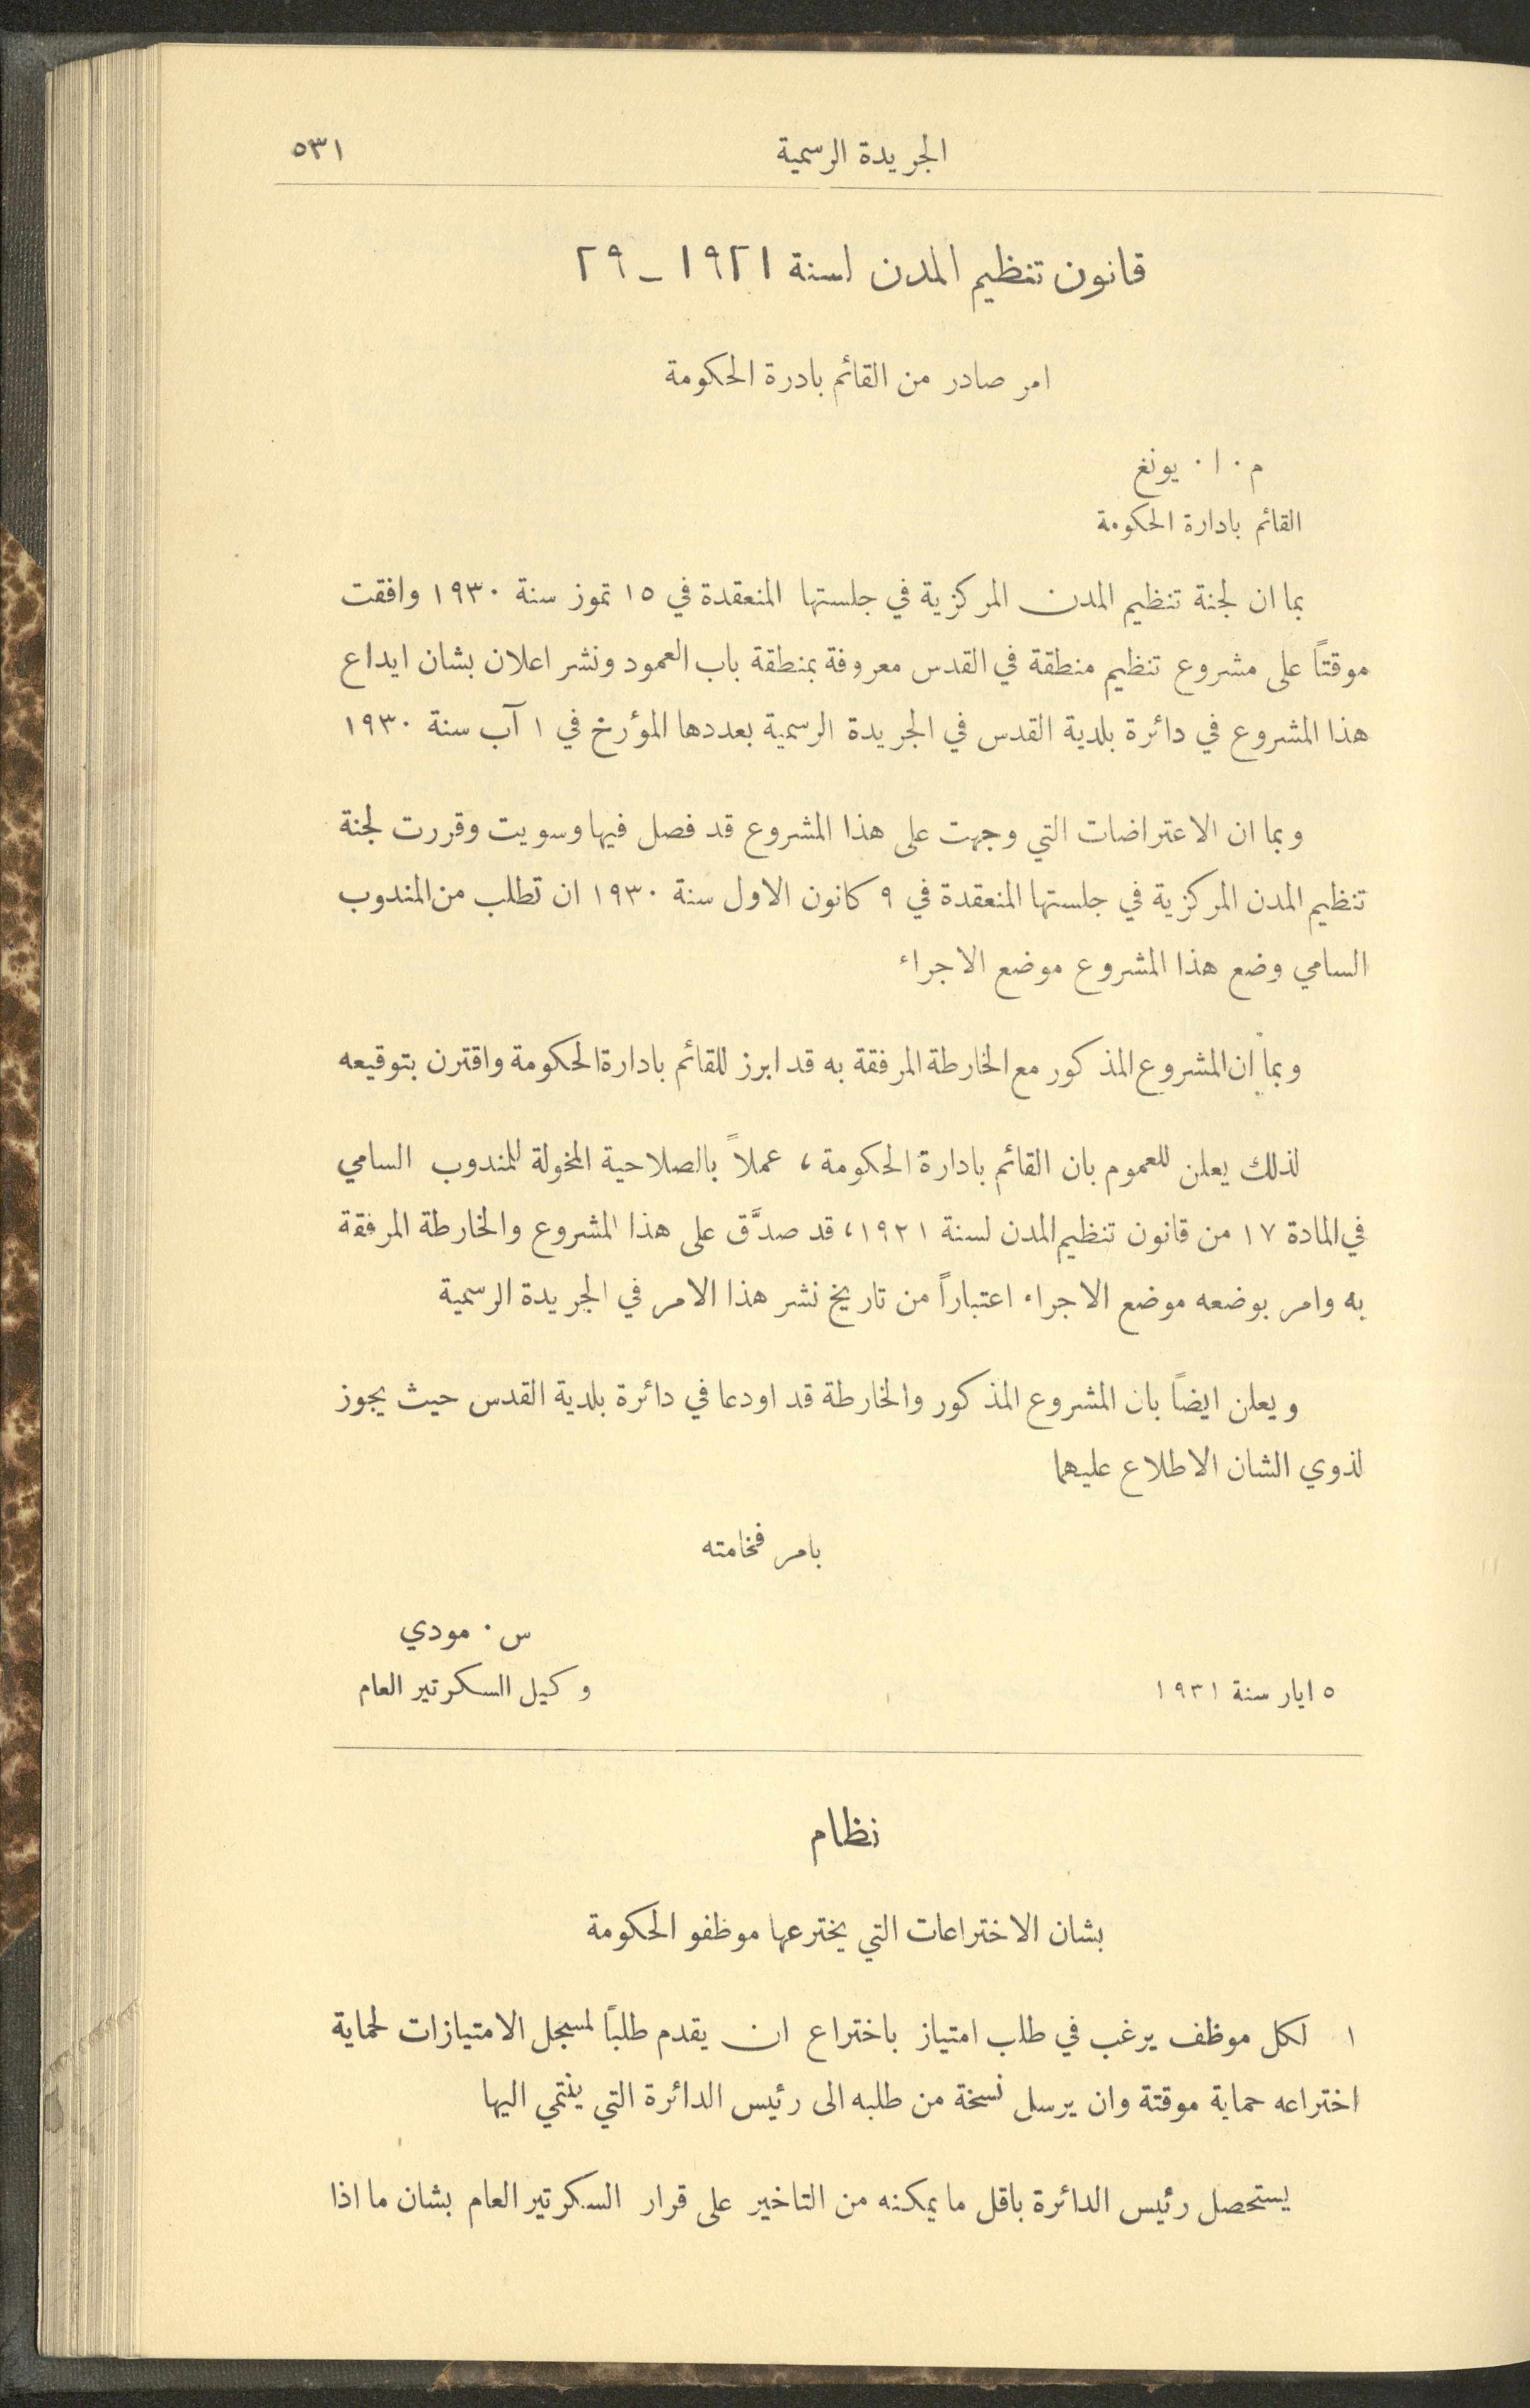 الجريدة الرسمية ٥٣١
قانون تنظيم المدن لسنة ١٩٢١ ـ ٢٩
امر صادر من القائم بادرة الحكومة
م · ا · يونغ
القائم بادارة الحكومة
بما ان لجنة تنظيم المدن المركزية في جلستها المنعقدة في ١٥ تموز سنة ١٩٣٠ وافقت
موقتاً على مشروع تنظيم منطقة في القدس معروفة بمنطقة باب العمود ونشر اعلان بشان ايداع
هذا المشروع في دائرة بلدية القدس في الجريدة الرسمية بعددها المؤرخ في ١ آب سنة ١٩٣٠
وبما ان الاعتراضات التي وجهت على هذا المشروع قد فصل فيها وسويت وقررت لجنة
تنظيم المدن المركزية في جلستها المنعقدة في ٩ كانون الاول سنة ١٩٣٠ ان تطلب من المندوب
السامي وضع هذا المشروع موضع الاجراء
وبما ان المشروع المذكور مع الخارطة المرفقة به قد ابرز للقائم بادارة الحكومة واقترن بتوقيعه
لذلك يعلن للعموم بان القائم بادارة الحكومة ، عملاً بالصلاحية المخولة للمندوب السامي
في المادة ١٧ من قانون تنظيم المدن لسنة ١٩٢١، قد صدَّق على هذا المشروع والخارطة المرفقة
به وامر بوضعه موضع الاجراء اعتباراً من تاريخ نشر هذا الامر في الجريدة الرسمية
ويعلن ايضاً بان المشروع المذكور والخارطة قد اودعا في دائرة بلدية القدس حيث يجوز
لذوي الشان الاطلاع عليهما
بامر فخامته
س · مودي
٥ ايار سنة ١٩٣١ وكيل السكرتير العام
نظام
بشان الاختراعات التي يخترعها موظفو الحكومة
١ لكل موظف يرغب في طلب امتياز باختراع ان يقدم طلباً لمسجل الامتيازات لحماية
اختراعه حماية موقتة وان يرسل نسخة من طلبه الى رئيس الدائرة التي ينتمي اليها
يستحصل رئيس الدائرة باقل ما يمكنه من التاخير على قرار السكرتير العام بشان ما اذا